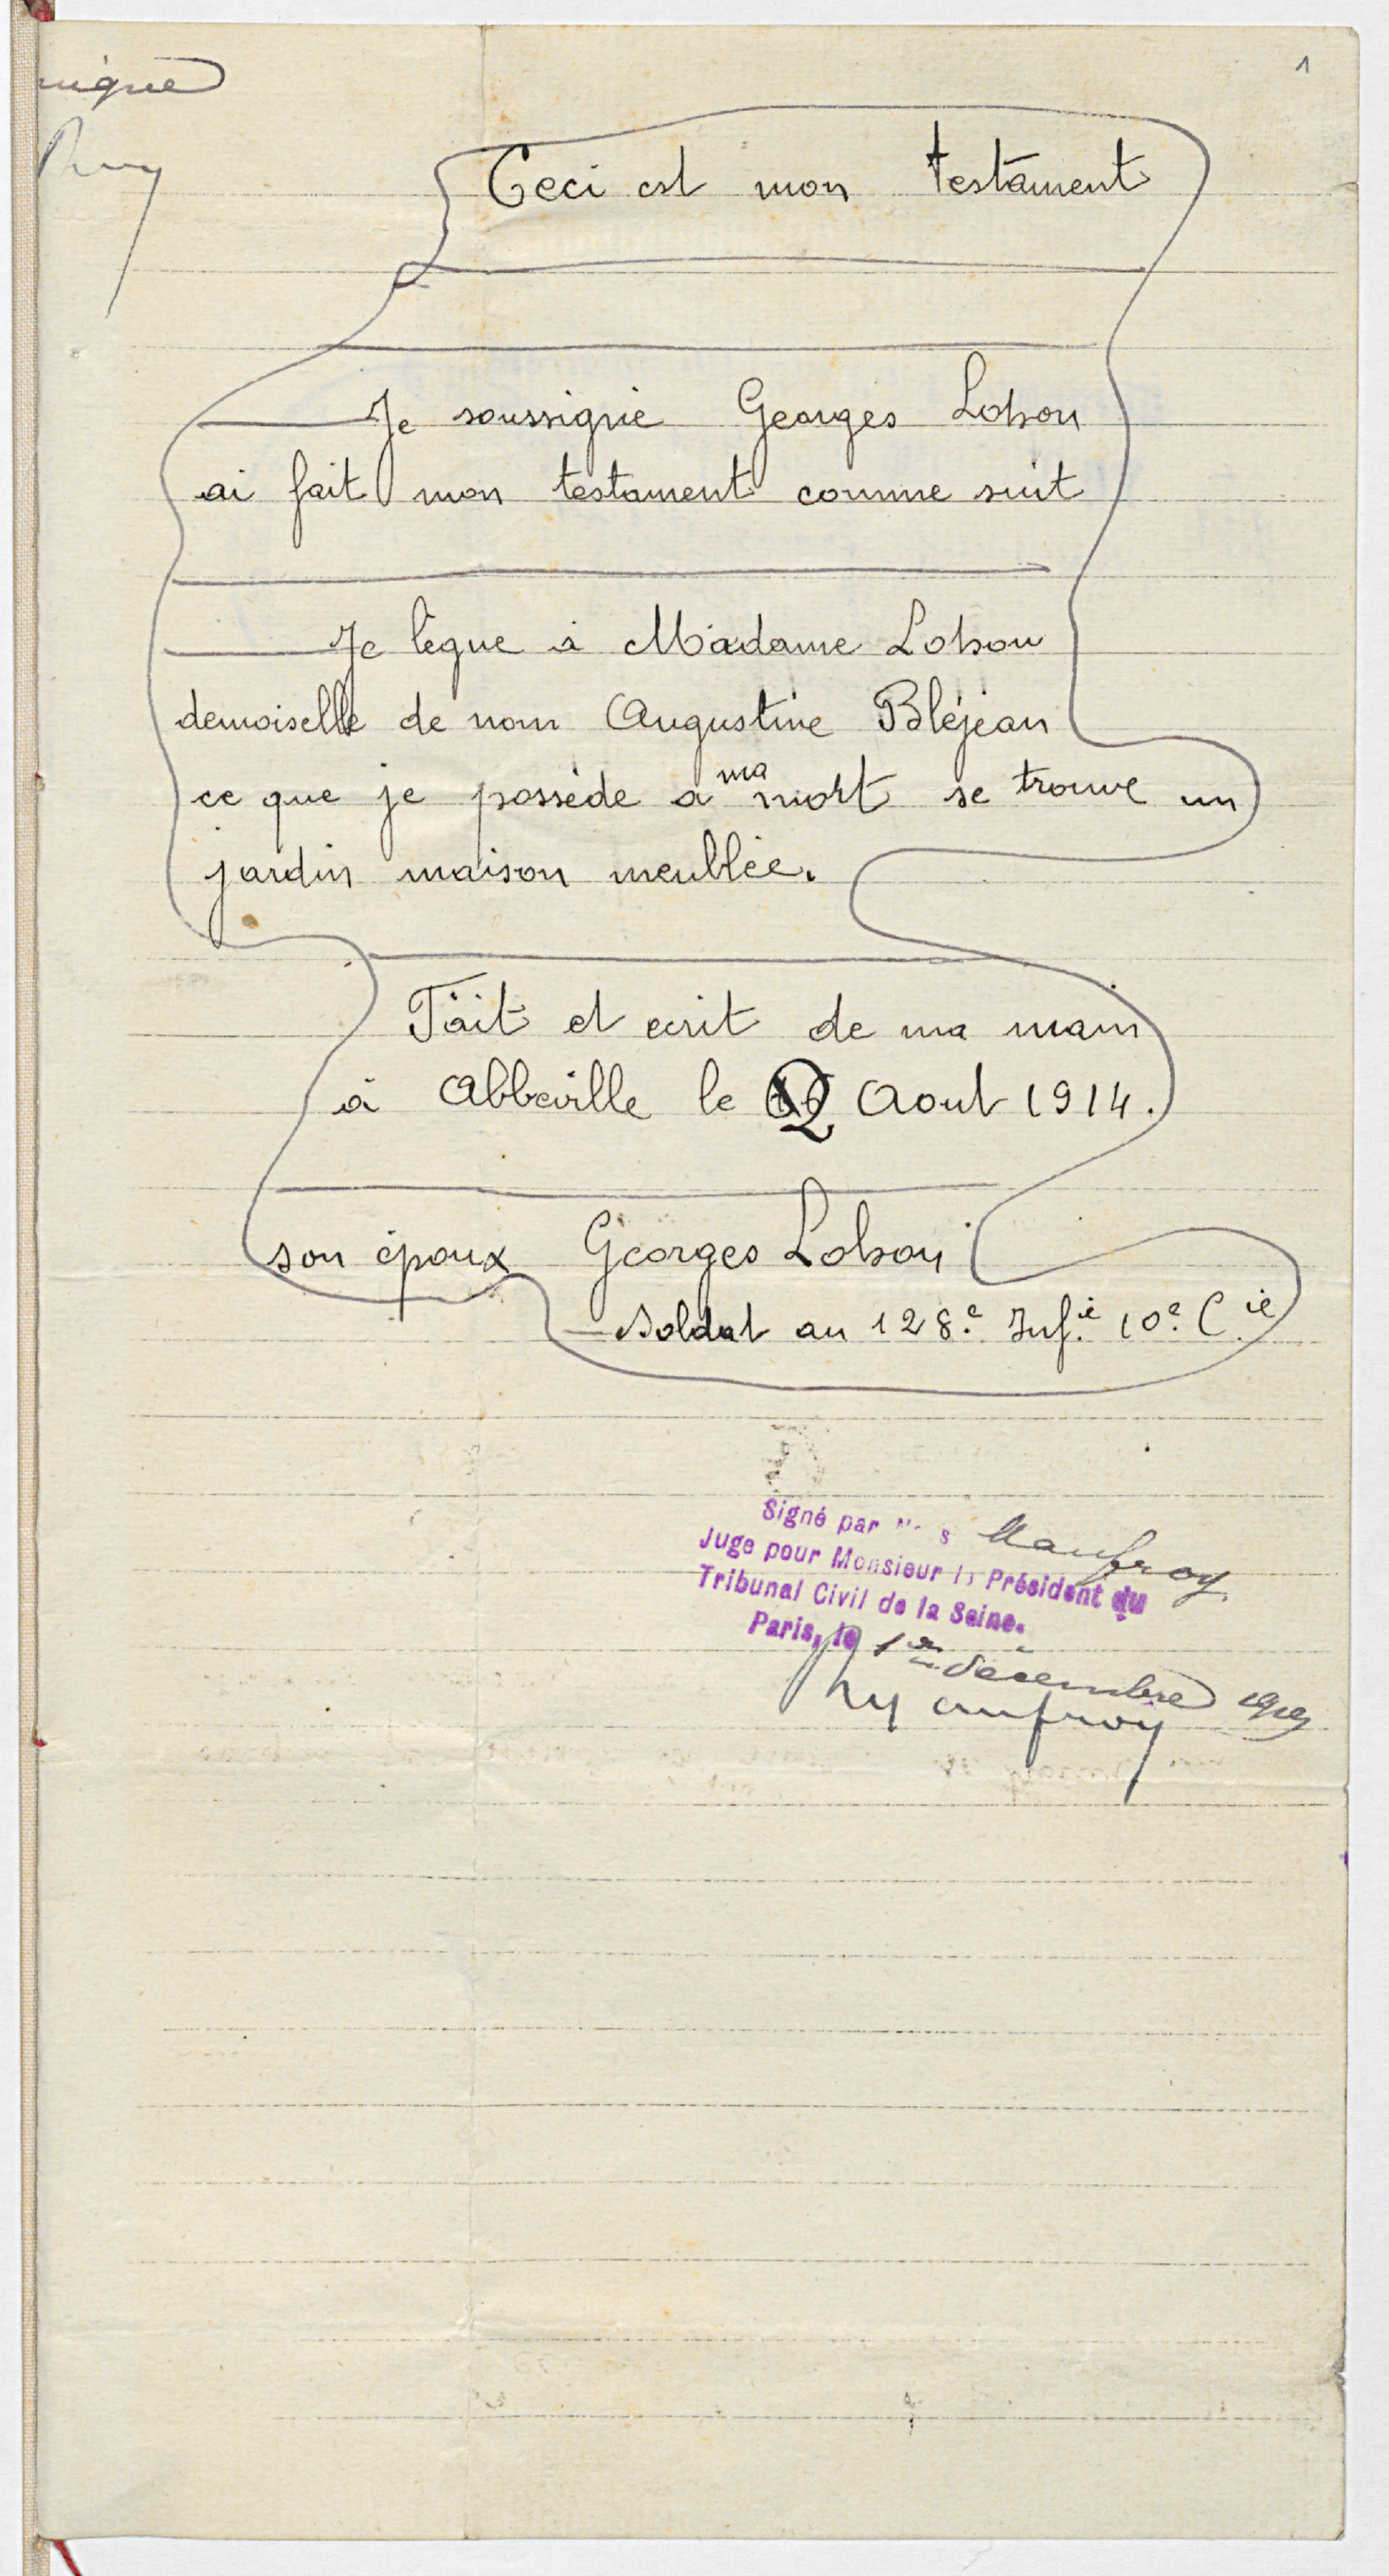 1
Ceci est mon testament
Je soussigné Georges Lobson
ai fait mon testament comme suit
Je lègue à Madame Lobson
demoiselle de nom Augustine Bléjean
ce que je possède a ma mort se trouve un
jardin maison meublée.
Fait et ecrit de ma main
à Abbeville le 2 Aout 1914.
son époux Georges Lobson
Soldat au 128e Infie 10e Cie
Signé par Manfroy
Juge pour Monsieur le Président du
Tribunal Civil de la Seine.
Paris, le 1er décembre